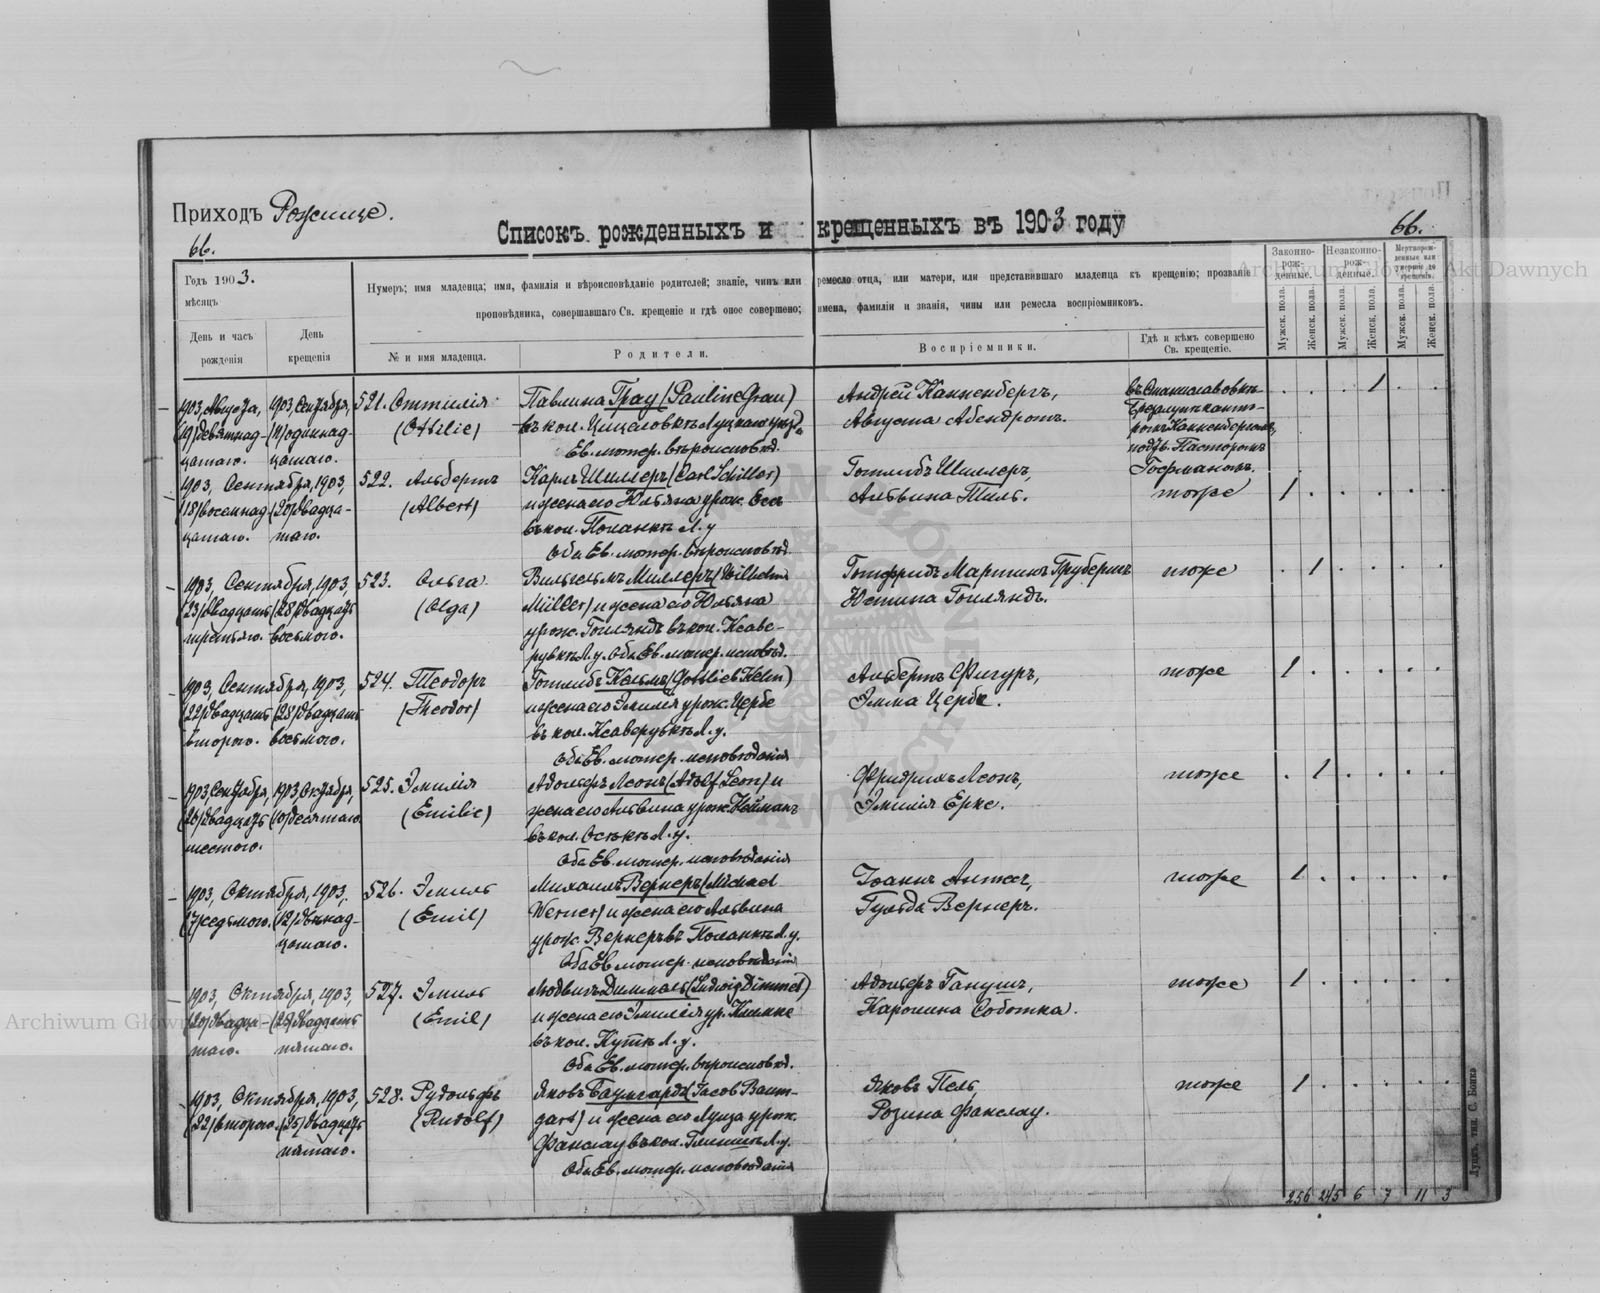 Приходъ Рожище.
66.
Списокъ рожденныхъ и крещенныхъ въ 1903 году
66.
Годъ 1903.
мѣсяцъ
День и часъ рожденія
День крещенія
Нумеръ; имя младенца; имя, фамилія и вѣроисповѣданіе родителей; званіе, чинъ или ремесло отца, или матери, или представившаго младенца къ крещенію; прозваніе
проповѣдника, совершавшаго Св. крещеніе и гдѣ оное совершено; имена, фамиліи и званія, чины или ремесла воспріемниковъ.
№ и имя младенца.
Родители.
Воспріемники.
Гдѣ и кѣмъ совершено Св. крещеніе.
Законно-рож-денные.
Незаконно-рож-денные.
Мертворож-денные или умершіе до крещенія.
Мужск. пола.
Женск. пола.
Мужск. пола.
Женск. пола.
Мужск. пола.
Женск. пола.
1903, Августа, 1903, Сентября, 521. Оттилія Павлина Грау (Pauline Grau) Андрей Канненбергъ, въ Станиславовкѣ 1
(19) девятнад- (11) одиннад- (Ottilie) въ кол. Луцкаго уѣзда Августа Абендротъ.
цатаго. цатаго. Ев. лютер. вѣроисповѣд. подтв. Пасторомъ
1903, Сентября, 1903, 522. Альбертъ Карлъ Шиллеръ (Carl Schiller) Готлибъ Шиллеръ, Госрманомъ.
(18) восемнад- (20) двадца- (Albert) и жена его Юльяна урож. Альвина Тиль. тоже 1
цатаго. таго. въ кол. Поланкѣ Л. у
Оба Ев. лютер. вѣроисповѣд.
1903, Сентября, 1903, 523. Ольга Вильгельмъ Миллеръ (Wilhelm Готфридъ Мартинъ тоже 1
(23) двадцать (28) двадцать (Olga) Müller) и жена его Юльяна Юстина Гоиляндъ.
третьяго. восьмого. урож. Гоиляндъ въ кол. Ксаве-
ровкѣ Л. у. Оба Ев. лютер. исповѣд.
1903, Сентября, 1903, 524. Теодоръ Готлибъ Кельмъ (Gottlieb Kelm) Альбертъ Фигуръ, тоже 1
(22) двадцать (28) двадцать (Theodor) и жена его Эмилія урож. Цербе Эмма Цербе.
второго. восьмого. въ кол. Ксаверувкѣ Л. у.
Оба Ев. лютер. исповѣданія
1903, Сентября, 1903 Октября, 525. Эмилія Адольфъ Леонъ (Adolf Leon) и Фридрихъ Леонъ, тоже 1
(26) двадцать (10) десятаго. (Emilie) жена его Альвина урож. Нейманъ Эмилія Ерке.
шестого. въ кол. Осѣкѣ Л. у.
Оба Ев. лютер. исповѣданія
1903, Октября, 1903, 526. Эмиль Михаилъ Вернеръ (Michael тоже 1
(7) седьмого. (12) двѣнад- (Emil) Werner) и жена его Альвина Гульда Вернеръ.
цатаго. урож. Вернеръ въ Поланкѣ Л. у.
Оба Ев. лютер. исповѣданія
1903, Октября, 1903, 527. Эмиль Людвигъ Диммель (Ludwig Dimmel) Адольфъ Ганушъ, тоже 1
(20) двадца- (25) двадцать (Emil) и жена его Эмилія ур. Климке Каролина Соботка.
таго. пятаго. въ кол. Л. у.
Оба Ев. лютер. вѣроисповѣд.
1903, Октября, 1903, 528. Рудольфъ Яковъ Баумгардъ (Jacob Baum- Яковъ Пель, тоже 1
(22) второго. (25) двадцать (Rudolf) gart) и жена его Луиза урож. Розина Фанслау.
пятаго. Фанслау въ кол. Л. у.
Оба Ев. лютер. исповѣданія
256 245 6 7 11 3
Луцкъ, тип. С. Бонка
Archiwum Główne Akt Dawnych
Archiwum Główn